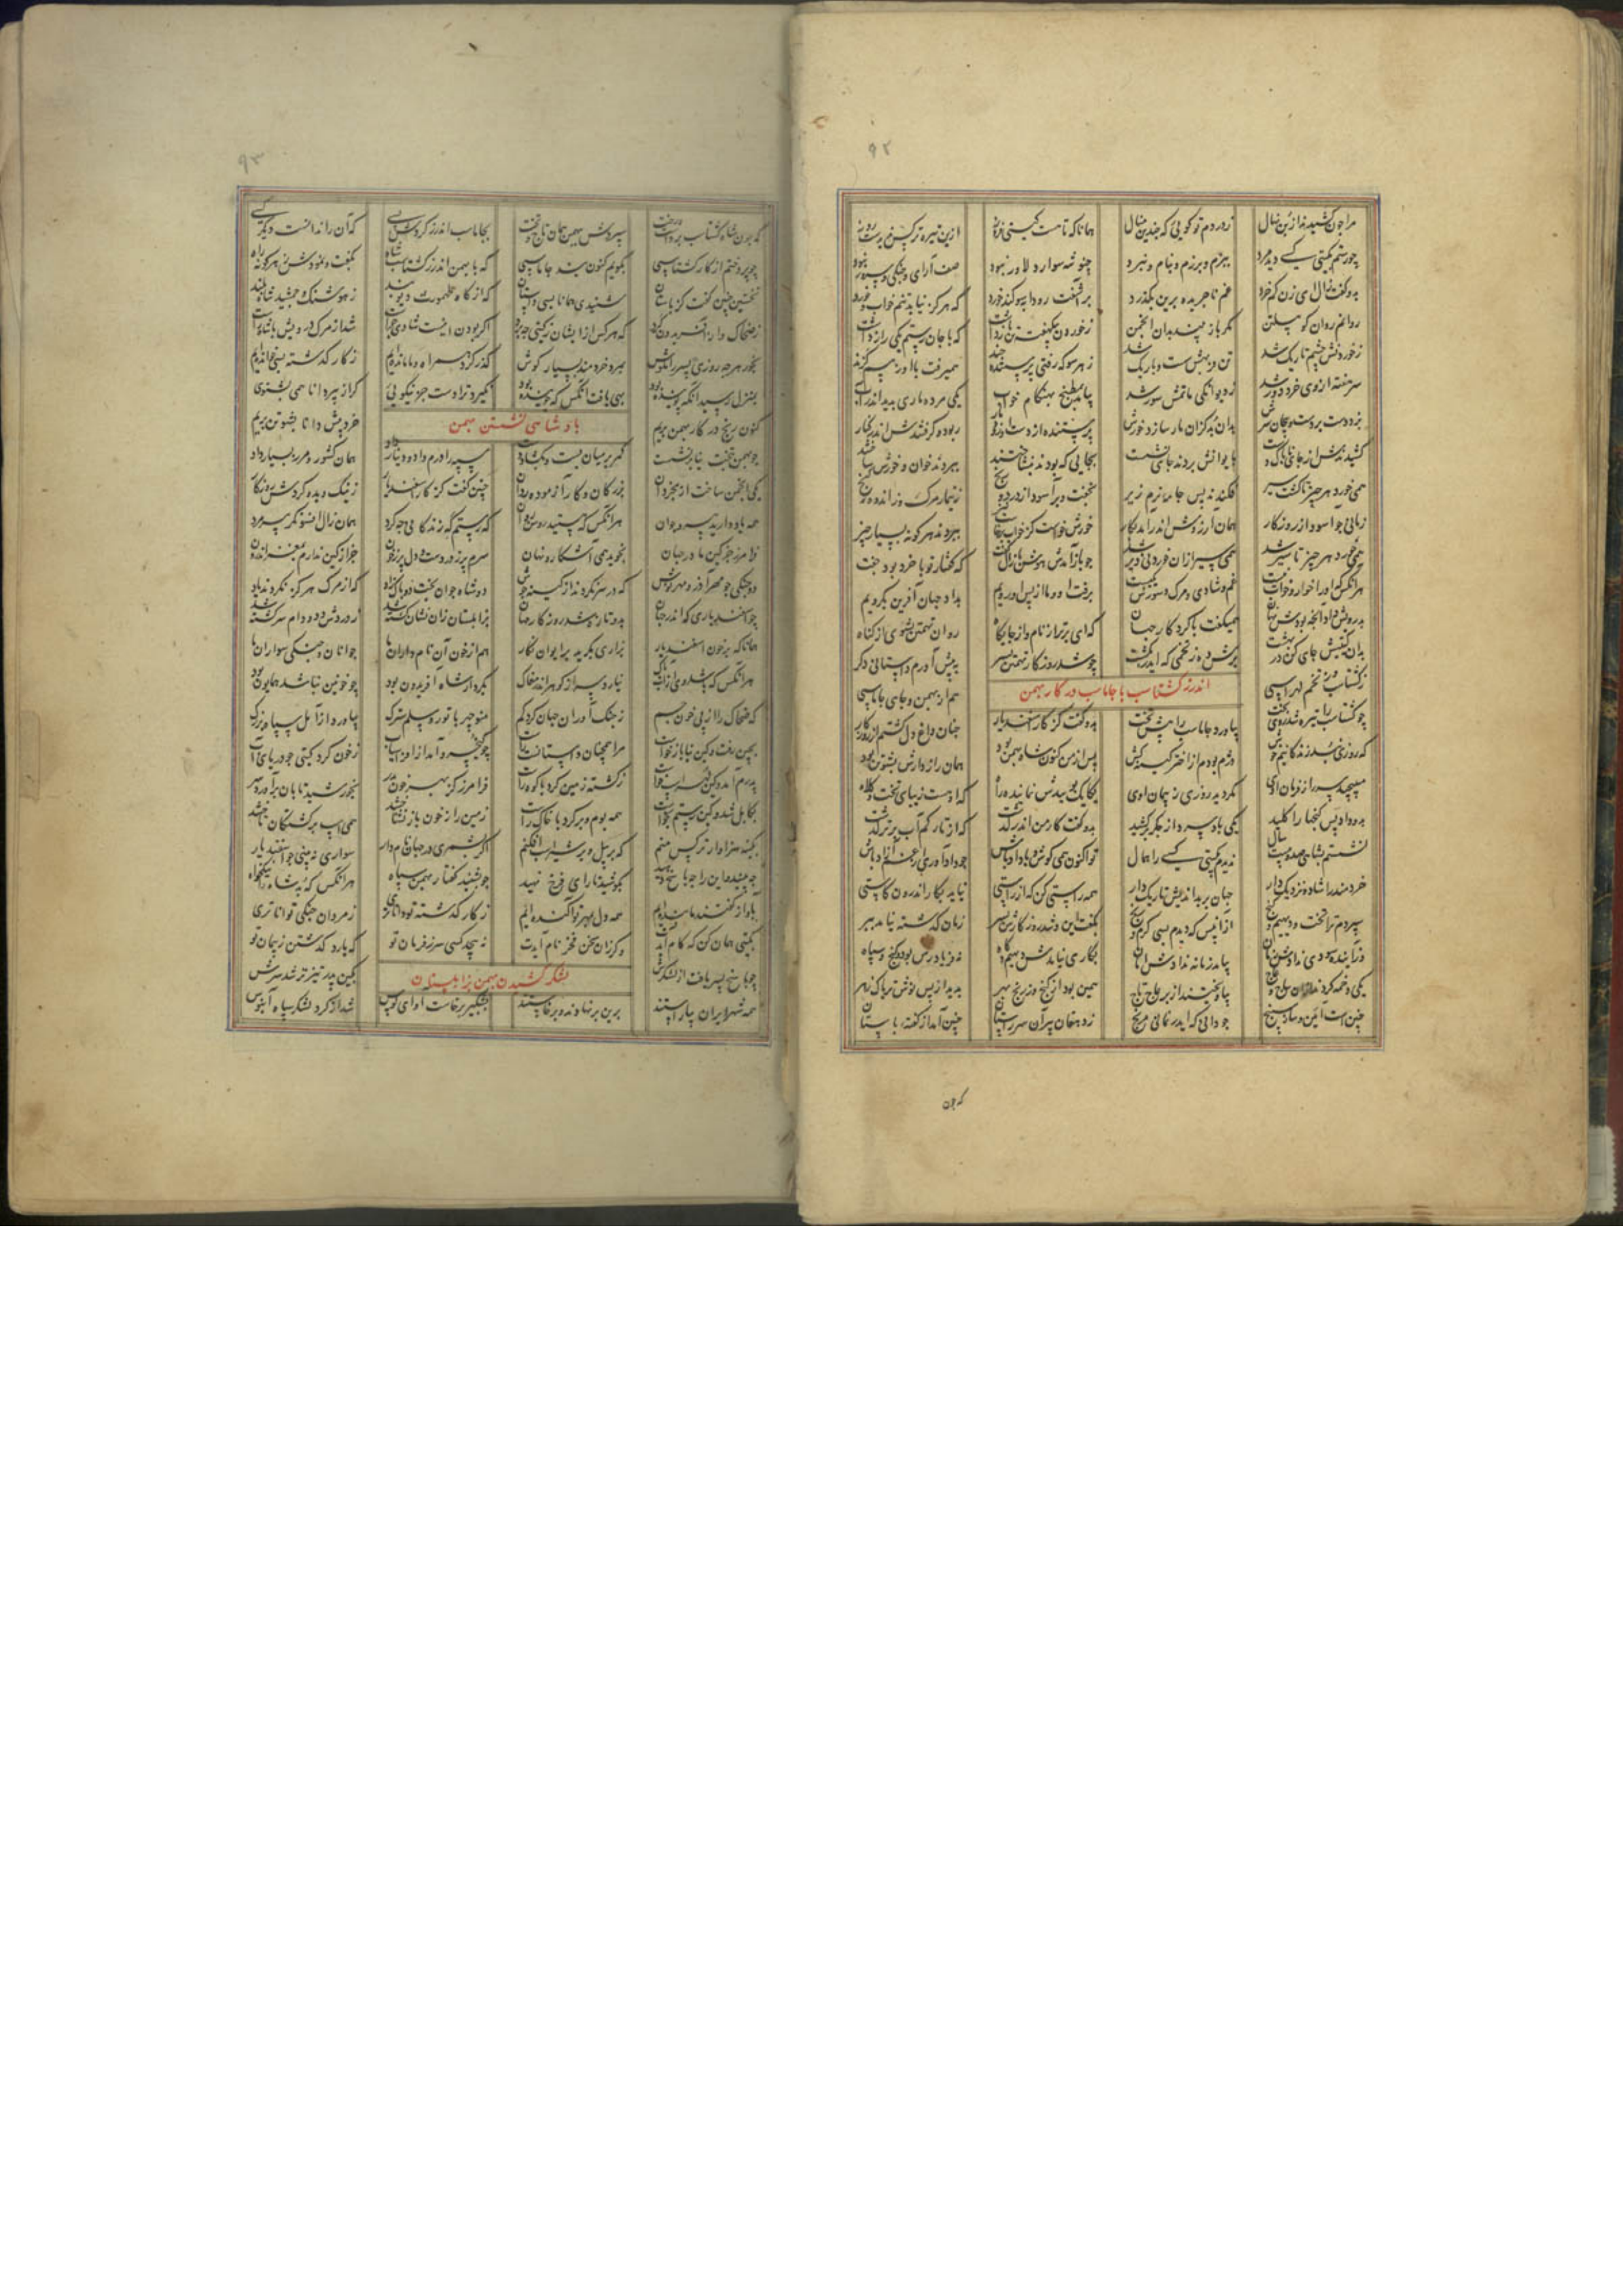 ۹۲
مرا چون کشیدند از بن نهال زدردم تو گویی که چندین منال همانا که تا هست گیتی فروز ازین تیره تر کس ندیدست روز
چو رستم بگیتی کسی دید مرد ببزم و برزم و بنام و نبرد چنو شه سوار و دلاور نبود صف آرای و جنگی و
بدو گفت زال ای زن کم خرد غم ناچریده برین بگذرد بر آشفت رودابه سوگند خورد که هرگز نیابد تنم خواب و خورد
روانم روان گو پیلتن مگر باز بیند بدان انجمن زخوردن یکی هفته تن بازداشت که با جان رستم یکی راز داشت
زخوردنش چشم تاریک شد تن نازکش و باریک شد زهر سو که رفتی پرستنده چند همیرفت با او زبیم گزند
سر هفته از وی خرد دور شد زدیوانگی ماتمش سور شد بیامد بمطبخ بهنگام خواب یکی مرده ماری بدید اندر آب
بزد دست و بگرفت سر بدان بد کزان مار سازد خورش پرستنده از دست ربوده گرفتندش اندر کنار
کشیدند از جای ناپاک دست بایوانش بردند جای نشست بجایی که بودش بنشاختند ببردند خوان و خورش ساختند
همی خورد هر چیز تا گشت سیر فکندند پس جامه نرم زیر بخفت و برآسود از درد و رنج زتیمار مرگ و زاندوه گنج
زمانی چو آسود از روزگار همان آرزو خورش خواست کز خواب برخاست ببردند هر گونه بسیار چیز
همی خورد هر چیز تا سیر شد چو باز آمدش هوش با زال گفت که گفتار تو با خرد بود جفت
هر آنکس که او را خور و خواب نیست غم و شادی و مرگ و سورش یکیست برفت او و ما از پس او رویم بداد جهان آفرین بگرویم
بدرویش داد آنچه بودش نهان همیگفت با کردگار جهان که ای برتر از نام و از جایگاه روان تهمتن بشوی از گناه
بدان گیتیش جای کن در بهشت برش ده ز تخمی که ایدر بکشت چو شد روزگار تهمتن بسر به پیش آورم داستانی دگر
اندرز گشتاسب با جاماسب در کار بهمن
زگشتاسب وز تخم لهراسپی هم از بهمن و جاهی جاماسپی
چو گشتاسب را تیره شد روی بخت بیاورد جاماسب را پیش تخت بدو گفت کز کار اسفندیار چنان داغ دل گشتم از روزگار
که روزی نبد زندگانیم خوش دژم بودم از اختر کینه کش پس از من کنون شاه بهمن بود همان راز دارش پشوتن بود
مپیچید سر از فرمان اوی مگردید روزی ز پیمان اوی یکایک بویدش نماینده راه که اوست زیبای تخت و کلاه
بدو داد پس گنجها را کلید یکی باد سرد از جگر برکشید بدو گفت کار من اندر گذشت که از تارکم آب برتر گذشت
نشستم بشاهی صد و بیست سال ندیدم بگیتی کسی را همال تو اکنون همی کوش و با داد باش چو داد آوری از غم آزاد باش
خردمند را شاد و نزدیک دار جهان بر بداندیش تاریک دار همه راستی کن که از راستی نیاید بکار اندرون کاستی
سپردم ترا تخت و دیهیم و گنج ازان پس که دیدم بسی گرم و رنج بگفت این و شد روزگارش بسر زمان گذشته نیامد ببر
یکی دخمه کردند از ساج و عاج بیاویختند از بر عاج تاج همین بود از گنج وز رنج بهر بدید از پس نوش تریاک زهر
چنین است آیین و ساز سپنج چو دانی که ایدر نمانی مرنج زدهقان پیر آن سراینده چنین آمد از گفته باستان
که چون
۹۳
که چون شاه گشتاسب بربست رخت سپردش ببهمن همان تاج و تخت بجاماسب اندرز کردش بسی که آن را ندانست دیگر کسی
چو پردختم از کار گشتاسپی بگویم کنون پند جاماسپی که با بهمن اندرز گشتاسب شاه بگفت و نمودش ز هر گونه راه
نخستین چنین گفت کز باستان شنیدی همانا بسی داستان که از گاه طهمورث دیوبند زهوشنگ و جمشید شاه بلند
زضحاک و از آفریدون گرد که هر کس از ایشان ز گیتی چه برد شد از مرگ درویش با شاه راست
بخور هر چه روزی بپسر و خردمند بسیار گوش گذر کرد همراه و ما ماندیم ز کار گذشته بسی خواندیم
بمنزل رسید آنکه پوینده بود بهی یافت آنکس که جوینده بود نگیرد ترا دست جز نیکویی گر از پیر دانا همی بشنوی
پادشاهی نشستن بهمن
کنون رنج در کار بهمن بریم خرد پیش دانا پشوتن بریم
چو بهمن بتخت نیا برنشست کمر بر میان بست و بگشاد دست سپه را درم داد و دینار داد همان کشور و مرز بسیار داد
یکی انجمن ساخت از بخردان بزرگان و کار آزموده ردان چنین گفت کز کار اسفندیار ز نیک و بد گردش روزگار
همه یاد دارید پیر و جوان هر آنکس که هستید روشن روان که رستم گه زندگانی چه کرد همان زال افسونگر پیر مرد
فرامرز جز کین ما در جهان نجوید همی آشکار و نهان سرم پر ز دردست و دل پر ز خون جز از کین ندارم بمغز اندرون
دو جنگی چو مهر آذر و مهر نوش دو شاه جوان بخت که از مرگ هرگز نکردند یاد
چو اسفندیاری که اندر جهان بدو تازه شد روزگار مهان بزابلستان زان نشان کشته شد ز دردش دد و دام سرگشته شد
همانا که بر خون اسفندیار بزاری بگرید بر ایوان نگار هم از خون آن نامداران ما جوانان و جنگی سواران ما
هر آنکس که باشد ز آب پاک نیارد سر از گوهر اندر مغاک بکردار شاه آفریدون بود چو خونین نباشد همایون بود
که ضحاک را از پی خون جم ز جنگ آوران جهان کرد کم منوچهر با تور و سلم سترگ بیاورد از آمل سپاه بزرگ
بچین رفت و کین نیا باز خواست مرا همچنان داستانست راست چو کیخسرو آمد از افراسیاب ز خون کرد گیتی چو دریای آب
پدرم آمد و کین لهراسب خواست ز کشته زمین کرد با کوه راست فرامرز کز بهر خون پدر بخورشید تابان برآورد سر
بکابل شد و کین رستم بخواست همه بوم و بر کرد با خاک راست زمین را ز خون باز نشناختند همی اسپ بر کشتگان تاختند
بکینه سزاوارتر کس منم که بر پیل و بر شیر اسب افکنم اگر بشمری در جهان نامدار سواری نبینی چو اسفندیار
چه بینید و این را چه پاسخ دهید بکوشید تا رای فرخ نهید چو بشنید گفتار بهمن سپاه هر آنکس که بد شاه را نیکخواه
بآواز گفتند ما بنده ایم همه دل بمهر تو آگنده ایم ز کار گذشته تو داناتری ز مردان جنگی تواناتری
بگیتی همان کن که کام آیدت وگر زان سخن فخر نام آیدت نپیچد کسی سر ز فرمان تو که یارد گذشتن ز پیمان تو
لشکر کشیدن بهمن بزابلستان
چو پاسخ یافت از لشکرش بکین پدر تیزتر شد سرش
همه شهر ایران بیاراستند برین بر نهادند و برخاستند بشبگیر برخاست آوای کوس شد از گرد لشکر سپاه آبنوس